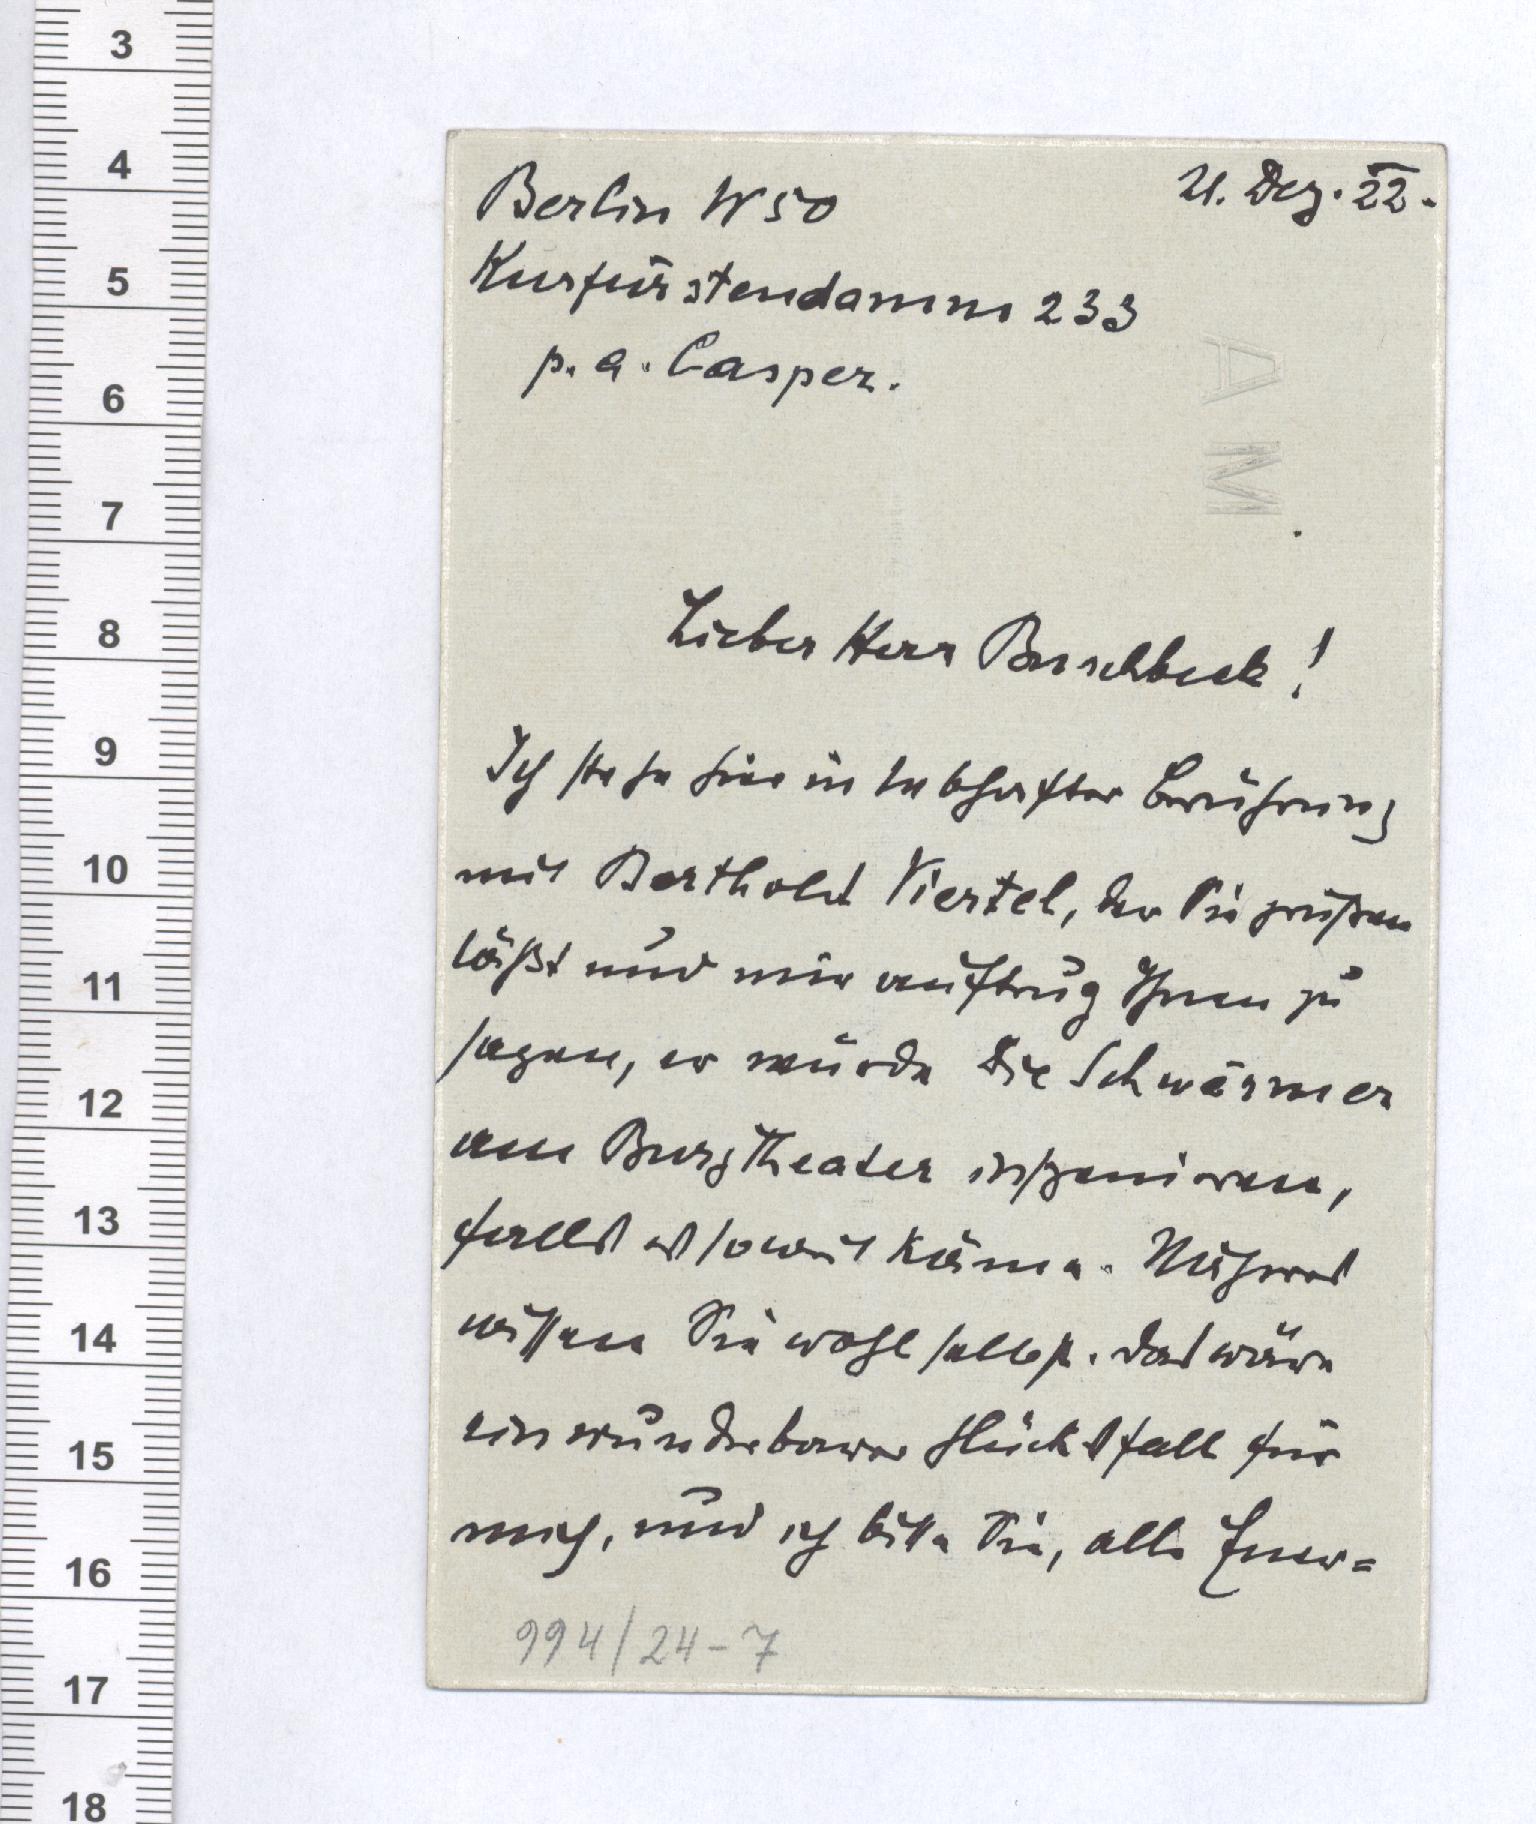 3
4
5
6
7
8
9
10
11
12
13
14
15
16
17
18
Berlin W 50
21. Dez. 22.
Kurfürstendamm 233
p. a. Casper.
A M
Lieber Herr Buschbeck!
Ich stehe hier in lebhafter Berührung
mit Berthold Viertel, der Sie grüßen
läßt und mir auftrug Ihnen zu
sagen, er würde Die Schwärmer
am Burgtheater inszenieren,
falls es soweit käme. Näheres
wissen Sie wohl selbst. Das wäre
ein wunderbarer Glücksfall für
mich, und ich bitte Sie, alle Ener=
994/24-7